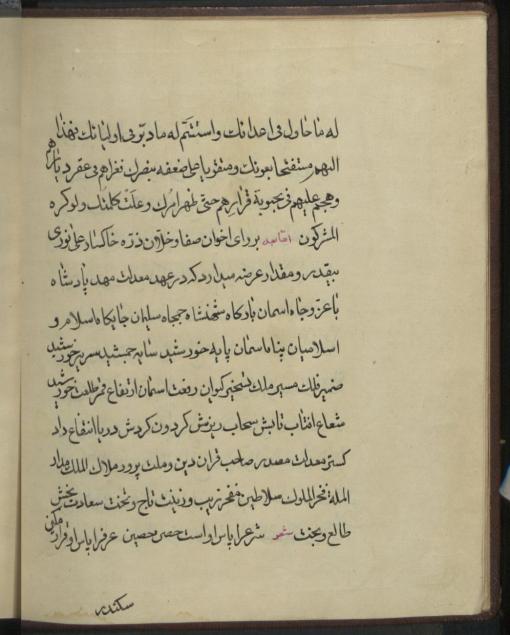 له ما حاول فی اعدائك واستتم له ما دبّر فی اولیائك فنهد
الیهم مستفتحا بعونك ومتقویا علی ضعفه بنصرك فغزاهم فی عقر دیارهم
وهجم علیهم فی بحبوبة قرارهم حتی ظهر امرك وعلت كلمتك ولو كره
المشركون امّا بعد بر رای اخوان صفا و خلّان ذرّه خاكسار علی نوری
بیقدر و مقدار عرضه میدارد كه در عهد معدلت مهد پادشاه
با عزّ و جاه اسمان بارگاه شهنشاه جمجاه سلیمان جایگاه اسلام و
اسلامیان پناه اسمان پایه خورشید سایه جمشید سریر خورشید
ضمیر فلك مسیر ملك تسخیر كیوان رفعت اسمان ارتفاع قمر طلعت خورشید
شعاع افتاب تابش سحاب ریزش گردون گردش دریا انتفاع داد
گستر معدلت مصدر صاحب قران دین و ملت پرور ملاك الملك مدار
الملة فخر الملوك سلاطین مفخر زیب و زینت تاج و تخت سعادت بخش
طالع و بخت شعر شرع را پاس او است حصن حصین عرف را پاس او قرار مكین
سكندر